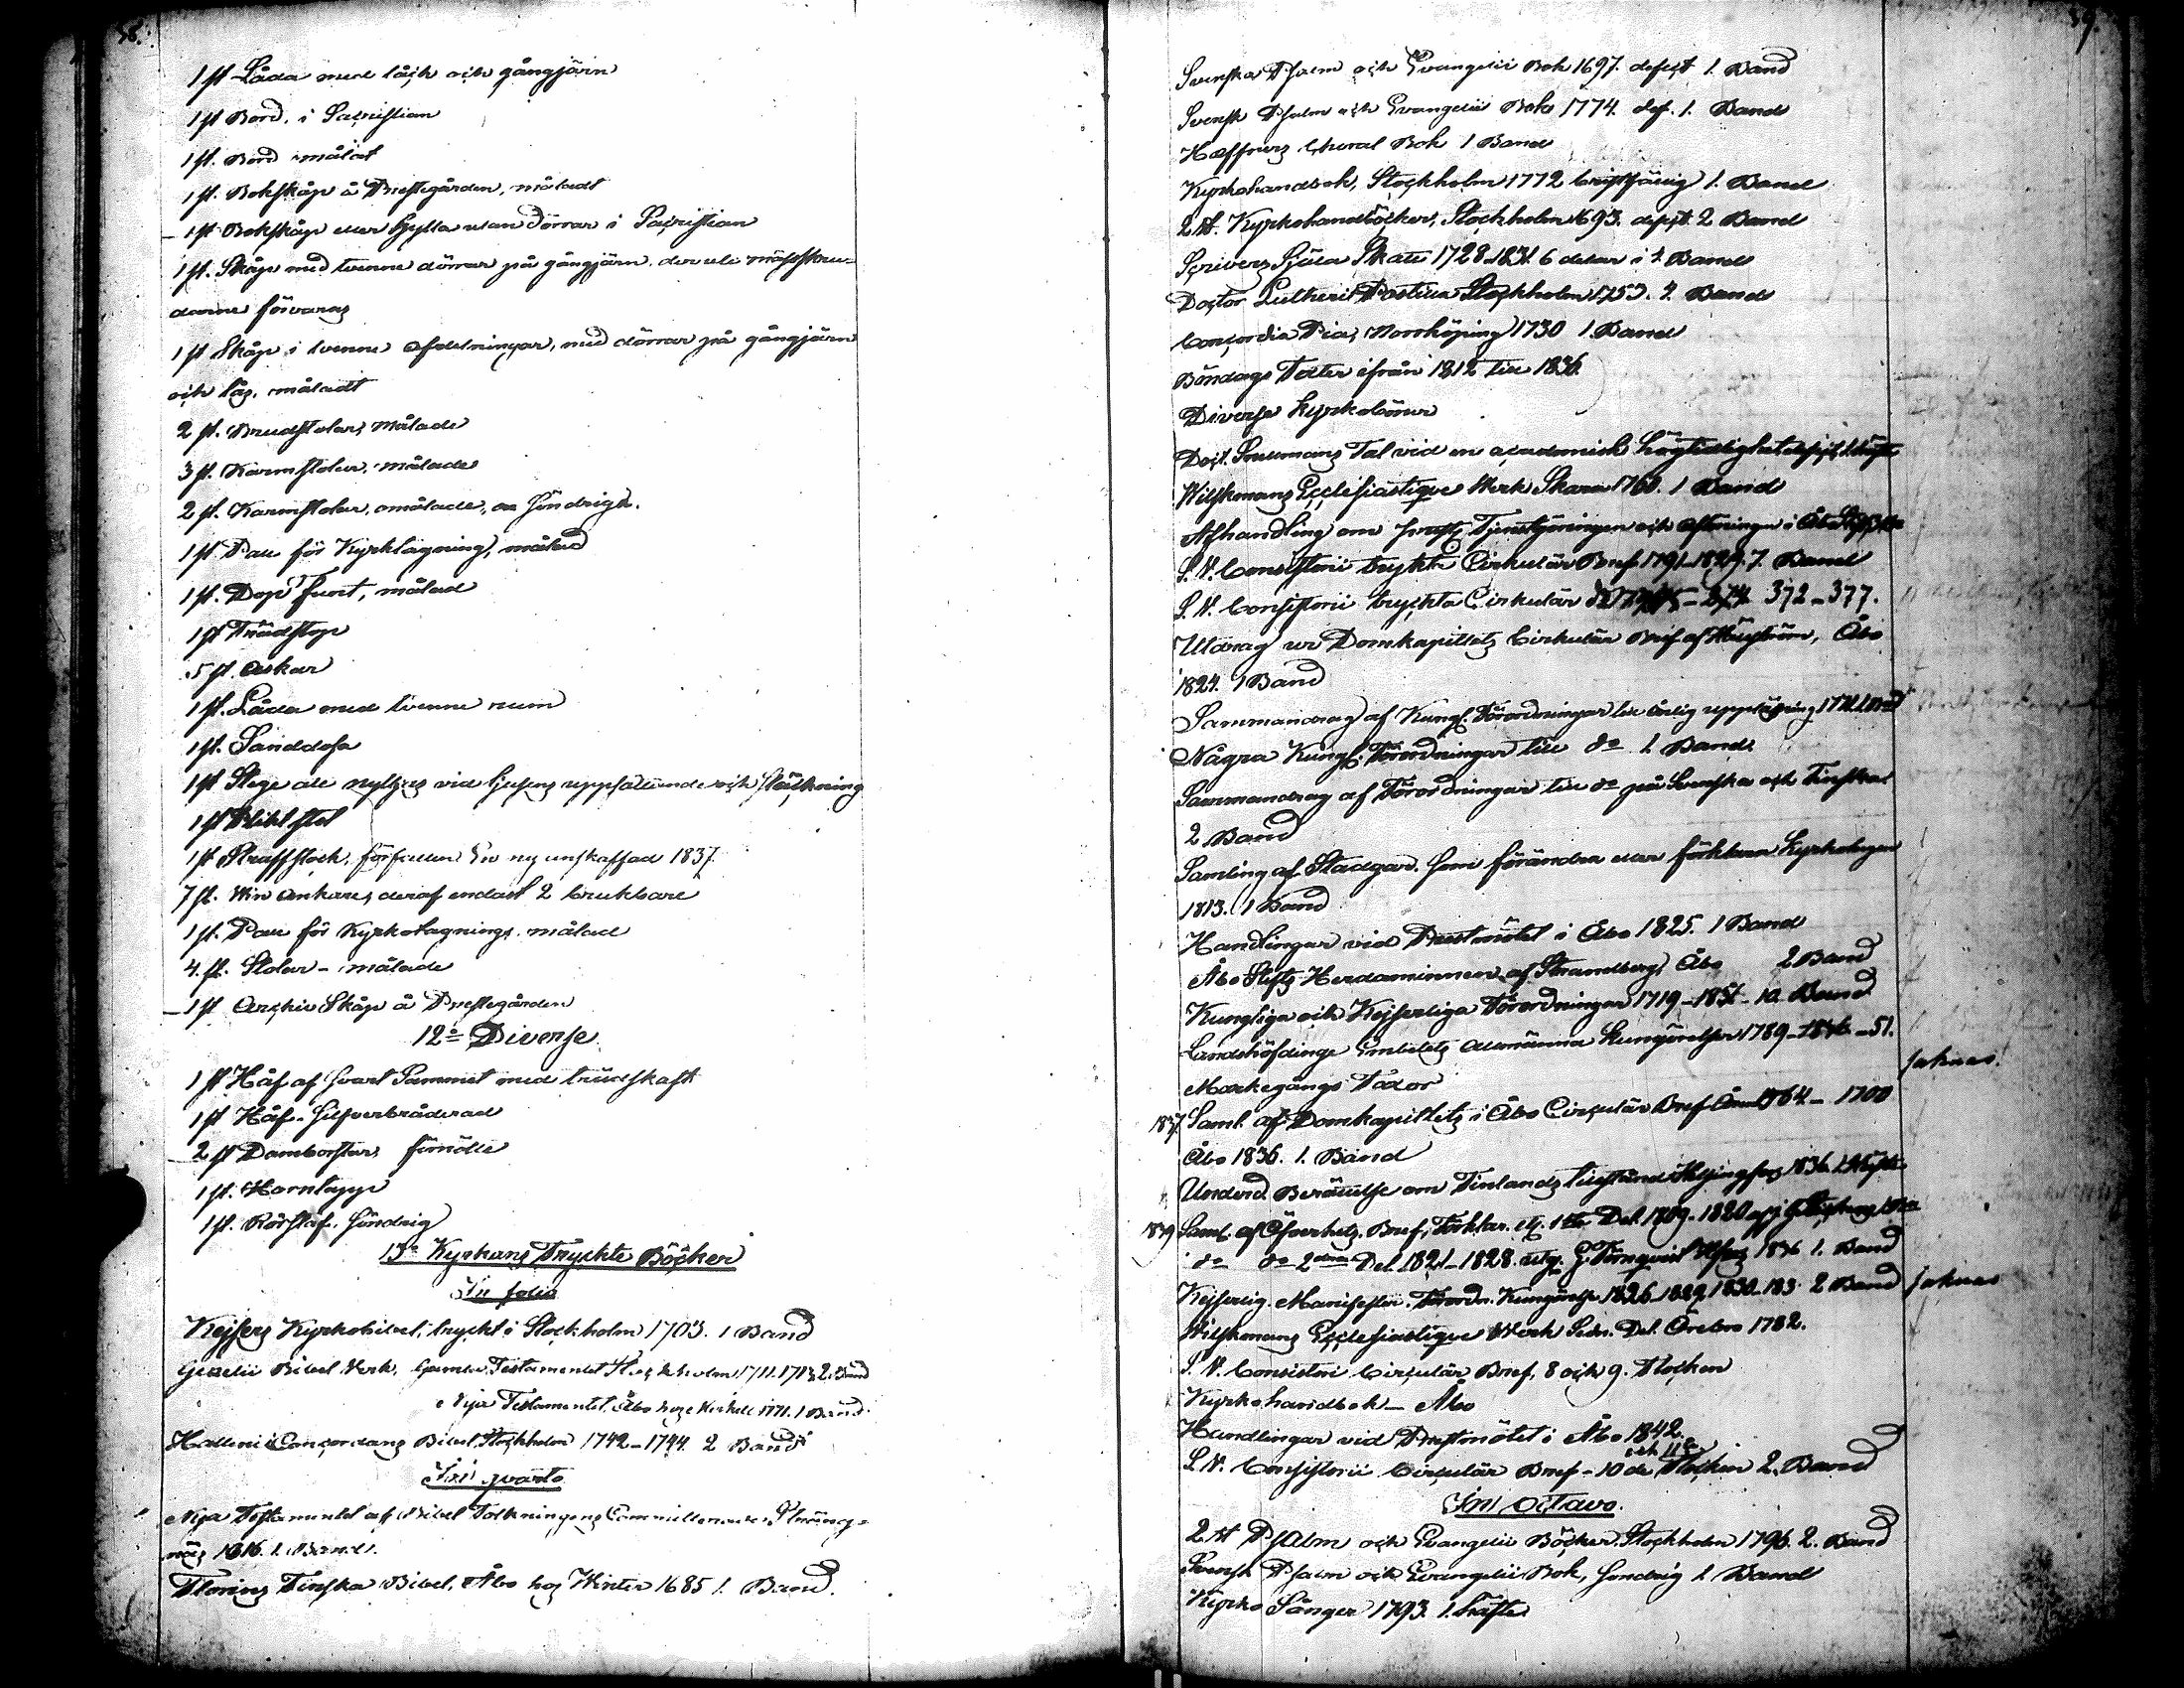 38.
1 st Låda med låck och gångjärn
1 st Bord, i Sacristian
1 st. Bord målat
1 st. Bokskåp å Prestegården, måladt
1 st Bokskåp eller Hylla utan Dörrar i Sacristian
1 st. Skåp med tvenne dörrar på gångjärn, der uti mässkru=
darne förvaras
1 st Skåp i tvenne afdelningar, med dörrar på gångjärn
och lås, måladt
2 st. Brudstolar, målade
3 st. Karmstolar, målade
2 st. Karmstolar, omålade, söndrige.
1 st Pall för Kyrktagning, målad
1 st. Dop Funt, målad
1 st Trädstop
5 st. Askar
1 st. Låda med tvenne rum
1 st. Sanddosa
1 st Stege att nyttjas vid ljusens upptändande och släckning
1 st Pliktstol
1 st Straffstock, förfallen En ny anskaffad 1837.
7 st. Win Ankare, deraf endast 2 brukbare
1 st. Pall för Kyrkotagnings. målad
4. st. Stolar - målade
1 st Archiv Skåp å Prestegården
12o Diverse
1 st Håf af svart Sammet med trädskaft
1 st Håf. Silfverbråderad
2 st Damborstar,
1 st. Hornlapp
1 st. Rörstaf. söndrig
13o Kyrkans Tryckte Böcker
In folio
Kejsers Kyrkobibel, tryckt i Stockholm 1703. 1 Band
Gezelii Bibel Verk, Gamla Testamentet Stockholm 1711.1713 2. Band
Nya Testamentet. Åbo hos Kiäll 1711. 1 Band.
Halleni Concordans Bibel, Stockholm 1742-1744. 2 Band
In quarto
Nya Testamentet af Bibel Tolkningens Committerade. Streng=
näs 1816. 1. Band.
Florins Finska Bibel, Åbo hos Winter 1685 1. Band.
39.
Svenska Psalm och Evangelii Bok 1697. defect 1. Band
Svensk Psalm och Evangelii Bok 1774. def. 1. Band
Hæffners Choral Bok 1 Band
Kyrkohandbok, Stockholm 1772 bristfällig 1. Band
2 st. Kyrkohandböcker, Stockholm 1693. defect. 2 Band
Scrivers Själa Skatt 1728-1831. 6 delar i 4 Band
Doctor Lutheri Postilla Stockholm 1753. 4. Band
Concordia Pia, Norrköping 1730 1. Band
Böndags Texter ifrån 1812 till 1836.
Diverse Kyrkoböner
Doct. Snellmans Tal vid en academisk högtidlighet
Wilskmans Ecclesiastique Werk Skara 1760. 1 Band
Afhandling om Tjenstgöringen och i Åbo
S. V. Consistorii tryckta Cirkulär Bref 1791-1829. 7. Band
S. V. Consistorii tryckta Cirkulär 372-377.
Utdrag ur Domkapitlets Cirkulär Bref af Åbo
1824. 1 Band
Sammandrag af Kungl. Förordningar till årlig uppläsning
Några Kungl. Förordningar till do 1. Band.
Sammandrag af Förordningar till do på Svenska och Finska
2 Band
Samling af Stadgar. Som förändra eller förklara Kyrkolagen
1813. 1 Band
Handlingar vid Prestmötet i Åbo 1825. 1 Band
Åbo Stifts Herdaminnen af Strandberg, Åbo 2 Band
Kungliga och Kejserliga Förordningar 1719-1831 - 10. Band
Landshöfdinge Embetets Allmänna Kungörelser 1789-1836-51.
Markegångs Taxor saknas.
1837. Saml. af Domkapitlets i Åbo Circulär Bref 1564 - 1700
Åbo 1836. 1. Band
Underd. Berättelse om Finlands tillstånd Helsingfors 1836. 1 Häfte
1839 Saml. af Öfverhets. Bref, Förklar. 1sta Del. 1809-1820
do do 2dra Del. 1821-1828. utg. G. Törnqvist 1836 1. Band
Kejserlig. Manifester. Förordn. Kungörelse 1826-1829, 1830-183 2 Band saknas
Wilskmans Ecclesiastique Werk Sedn. Del. Örebro 1782.
S. V. Consistorii Circulär Bref, 8 och 9. Flocken
Kyrkohandbok - Åbo
Handlingar vid Prestmötet i Åbo 1842.
S. V. Consistorii Circulär Bref - 10 de och 11te Flocken 2. Band
In octavo.
2 st Psalm och Evangelii Böcker. Stockholm 1796. 2. Band
Svensk Psalm och Evangelii Bok, söndrig 1. Band
Kyrko Sånger 1793. 1. häfte